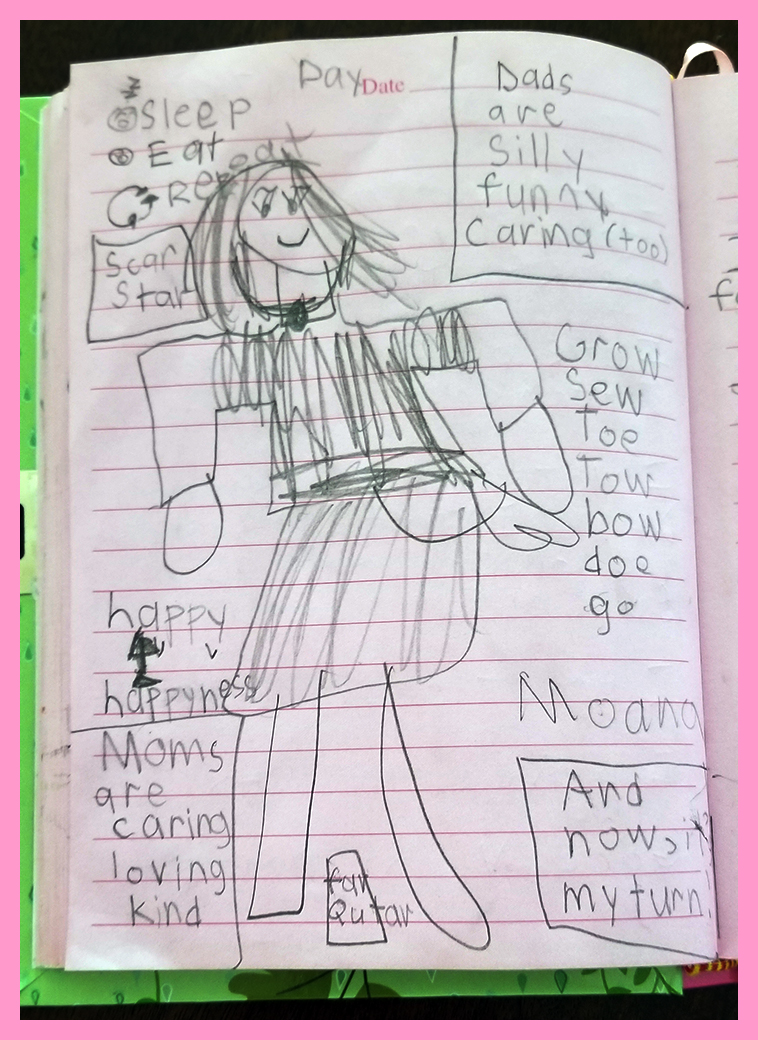 Day Date
Sleep
Eat
Repeat
Scar
Star
Dads
are
Silly
funny
Caring (too)
Grow
Sew
Toe
Tow
bow
doe
go
happy
happyness
Moana
Moms
are
caring
loving
kind
far
Qutar
And
now, it
my turn!